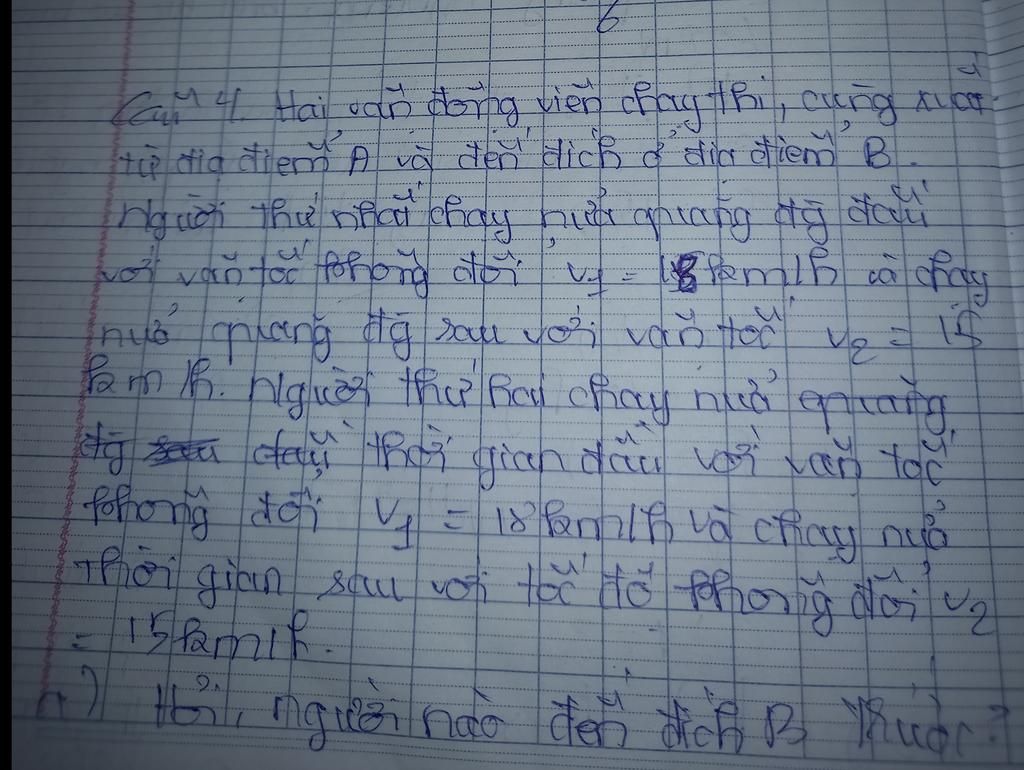 6
Câu 4. Hai vận động viên chạy thi, cùng xuất
từ địa điểm A và đến đích ở địa điểm B.
Người thứ nhất chạy nửa quãng đg đầu
với vận tốc không đổi v1 = 18km/h và chạy
nửa quãng đg sau với vận tốc v2 = 15
km/h. Người thứ hai chạy nửa quãng
đg đầu thời gian đầu với vận tốc
không đổi v1 = 18km/h và chạy nửa
thời gian sau với tốc độ không đổi v2
= 15km/h.
a) Hỏi, người nào đến đích B trước?